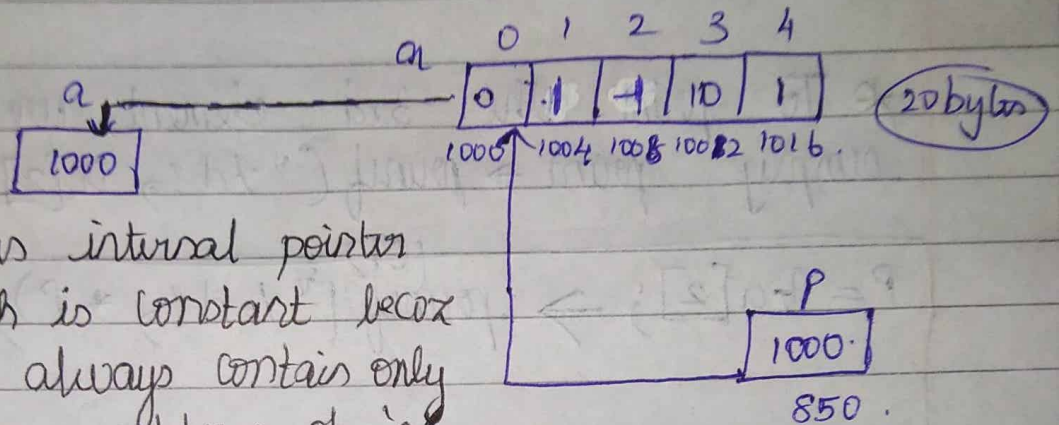 0 1 2 3 4
a
0 1 1 10 1
20 bytes
a
1000
1000 1004 1008 10012 1016.
internal pointer
is constant becoz
always contain only
P
1000.
850.